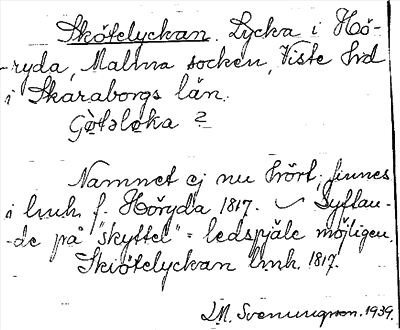 Skötelyckan. Lycka i Hö-
-ryda, Mallma socken, Viste hrd
i Skaraborgs län.
Götsloka ?
Namnet ej nu hört; finnes
i lmh. f. Höryda 1817. Syftan-
-de på "skyttel" = ledspjäle möjligen.
Skiötelyckan lmh. 1817.
L.M. Svenungsson. 1939.